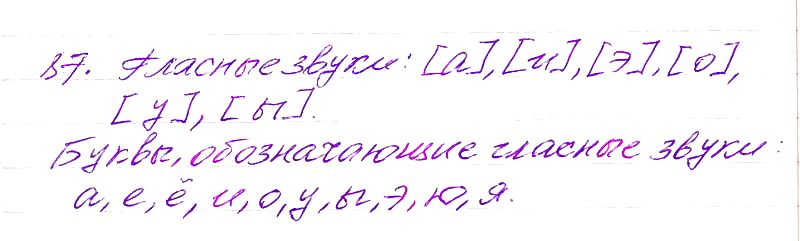 37. Гласные звуки: [а], [и], [э], [о],
[у], [ы].
Буквы, обозначающие гласные звуки:
а, е, ё, и, о, у, ы, э, ю, я.